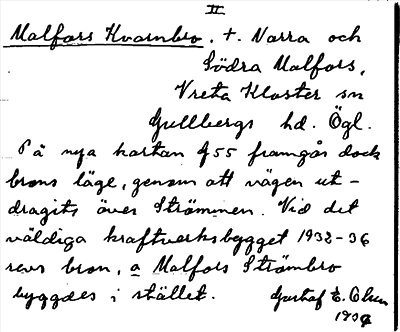 II
Malfors Kvarnbro. t. Norra och
Södra Malfors,
Vreta Kloster sn
Gullbergs hd. Ögl.
På nya kartan J55 framgår dock
brons läge, genom att vägen ut-
dragits över Strömmen. Vid det
väldiga kraftverksbygget 1932-36
revs bron, a Malfors Strömbro
byggdes i stället. Gustaf E. Olsen